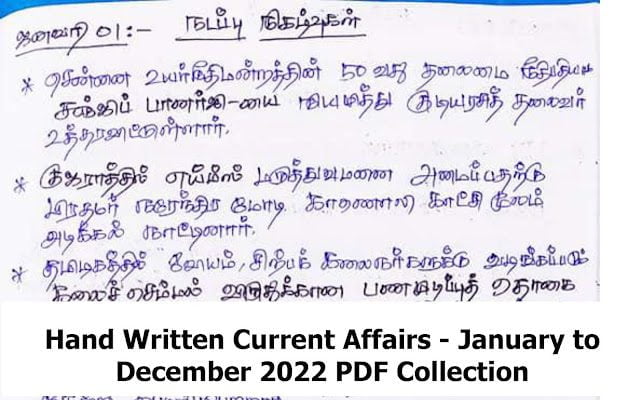 ஜனவரி 01:- நடப்பு நிகழ்வுகள்
* சென்னை உயர்நீதிமன்றத்தின் 50 வது தலைமை நீதிபதியாக
சஞ்ஜிப் பானர்ஜி-யை நியமித்து குடியரசுத் தலைவர்
உத்தரவிட்டுள்ளார்.
* குஜராத்தில் எய்ம்ஸ் மருத்துவமனை அமைப்பதற்கு
பிரதமர் நரேந்திர மோடி காணொலி காட்சி மூலம்
அடிக்கல் நாட்டினார்.
* தமிழகத்தில் ஓவியம், சிற்பக் கலைஞர்களுக்கு வழங்கப்படும்
கலைச் செம்மல் விருதிக்கான பணமுடிப்புத் தொகை
Hand Written Current Affairs - January to
December 2022 PDF Collection